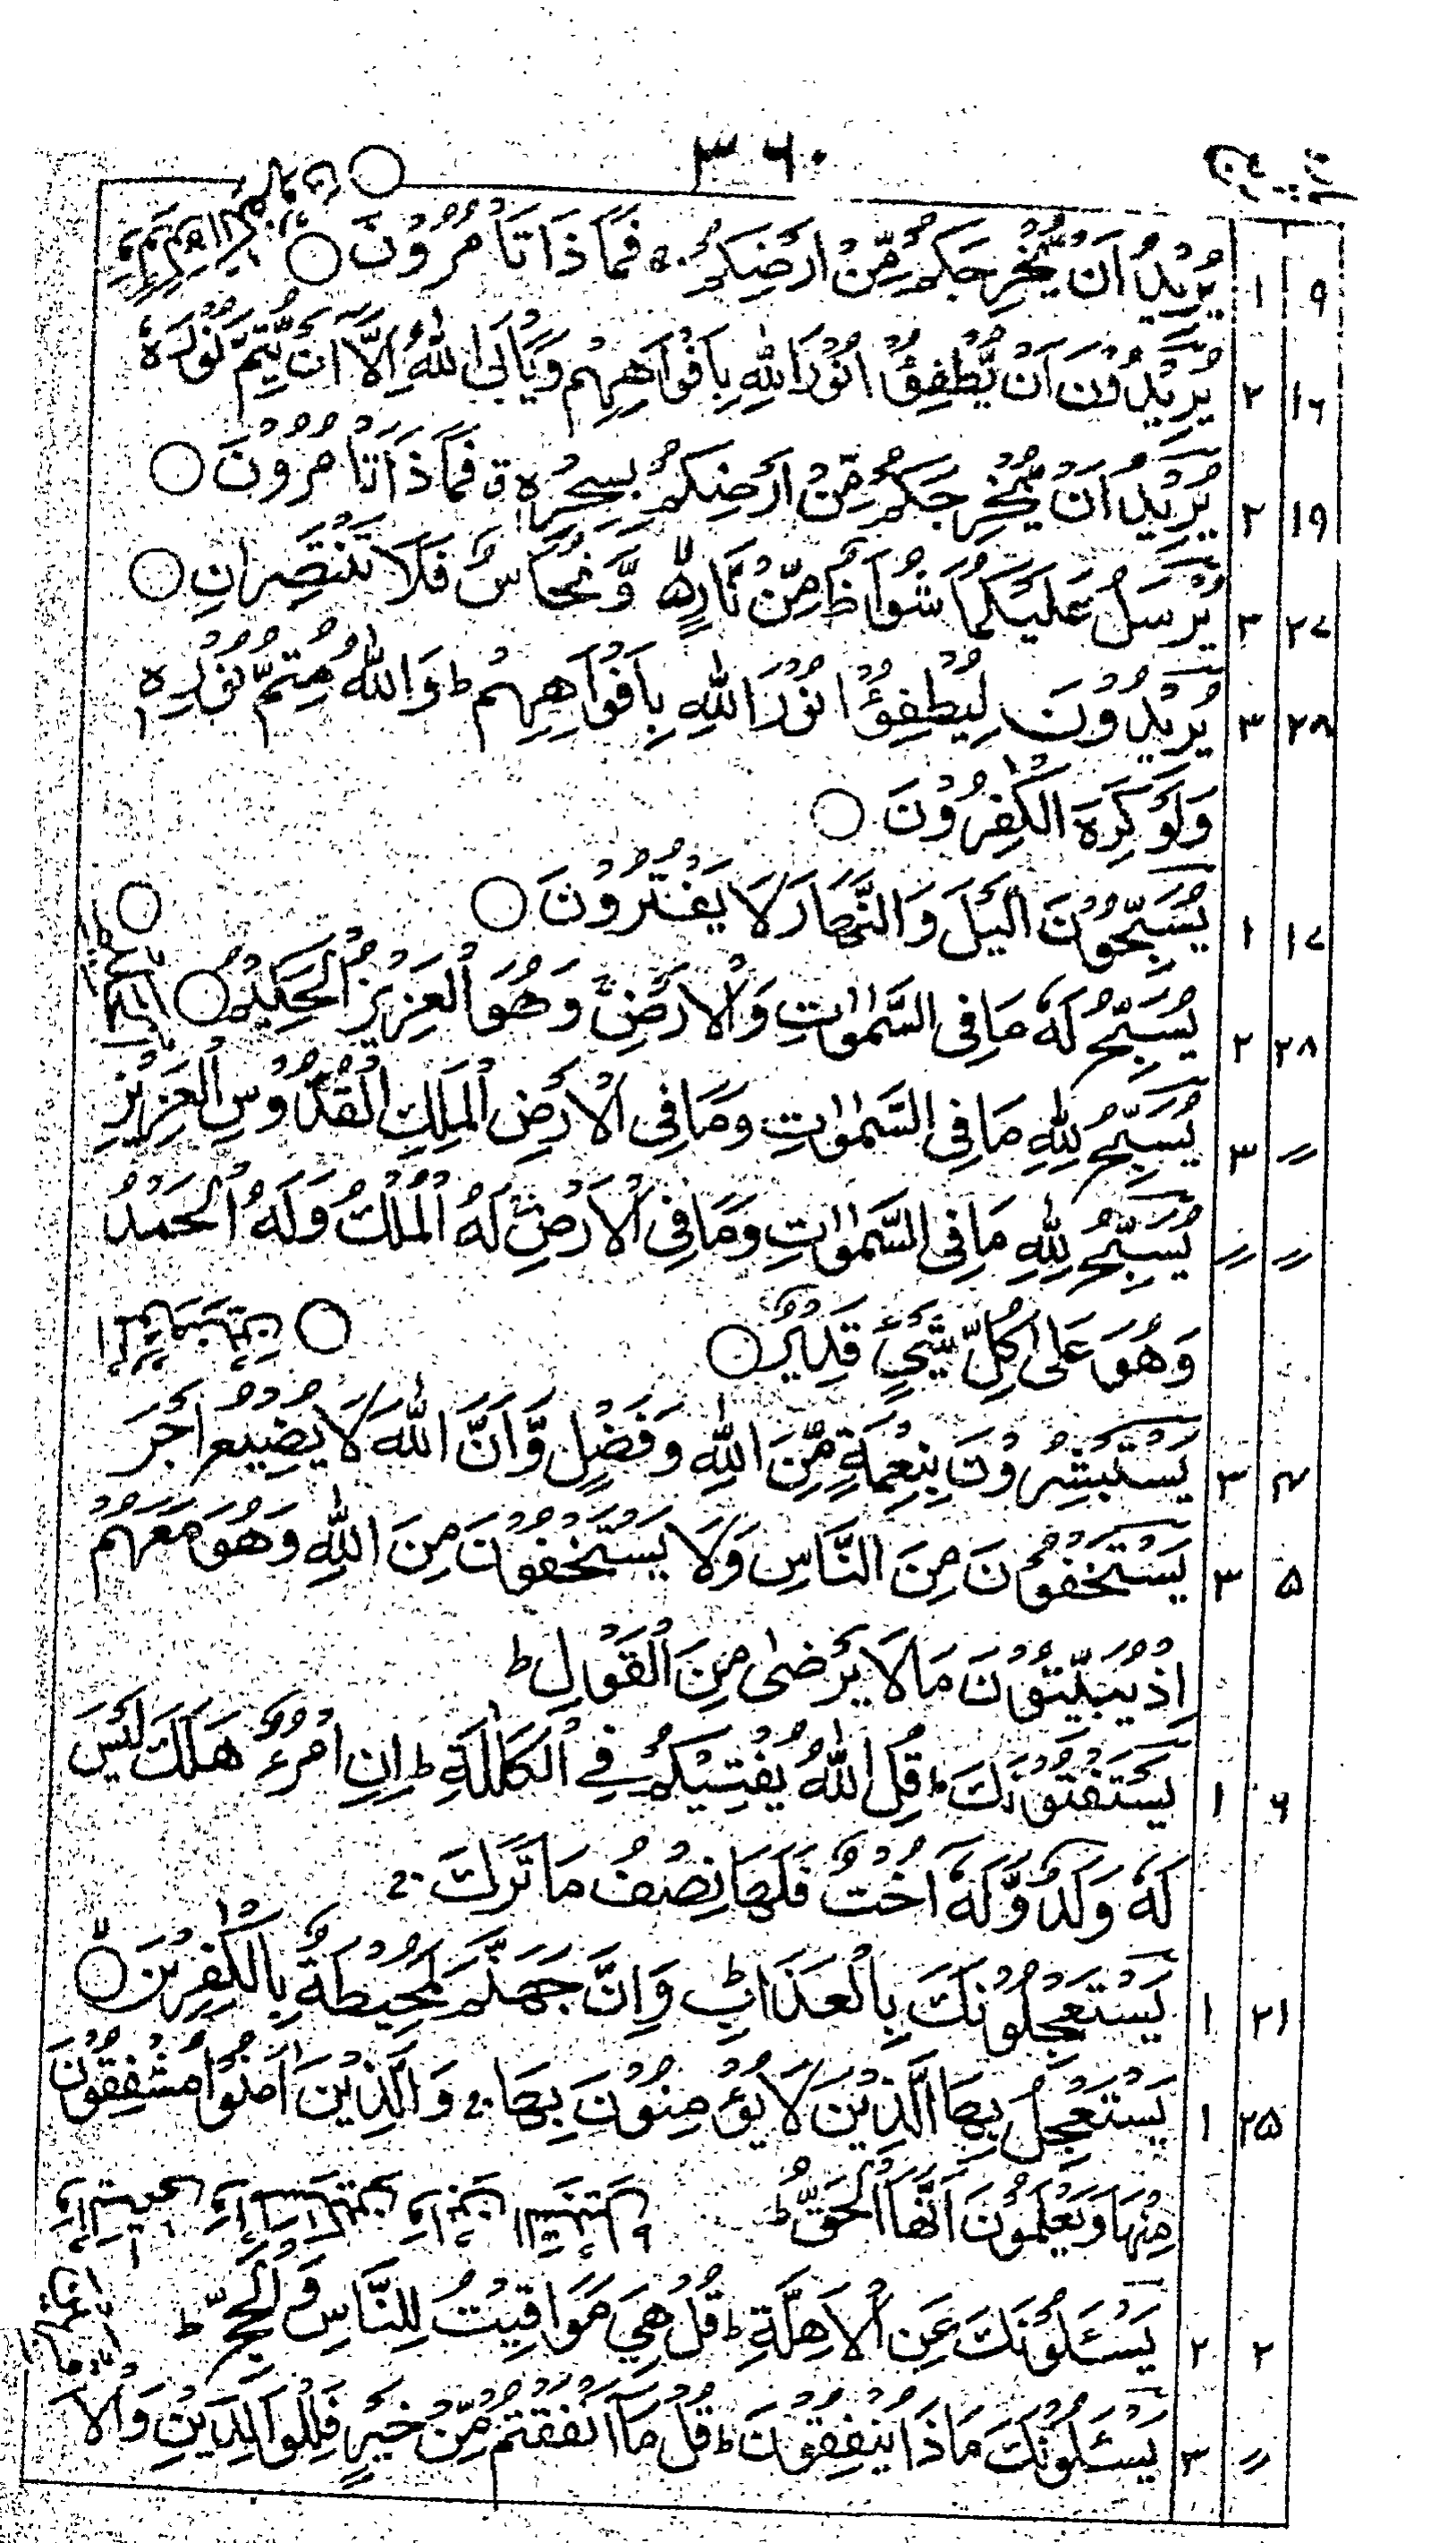 ۳۶۰
۹ ۱ يُرِيْدُ اَنْ يُّخْرِجَكُمْ مِّنْ اَرْضِكُمْ ۚ فَمَاذَا تَاْمُرُوْنَ ○
۱۶ ۲ يُرِيْدُوْنَ اَنْ يُّطْفِـُٔوْا نُوْرَ اللّٰهِ بِاَفْوَاهِهِمْ وَيَاْبَى اللّٰهُ اِلَّآ اَنْ يُّتِمَّ نُوْرَهٗ
۱۹ ۲ يُرِيْدُ اَنْ يُّخْرِجَكُمْ مِّنْ اَرْضِكُمْ بِسِحْرِهٖ ق فَمَاذَا تَاْمُرُوْنَ ○
۲۷ ۳ يُرْسَلُ عَلَيْكُمَا شُوَاظٌ مِّنْ نَّارٍ ۵ وَّنُحَاسٌ فَلَا تَنْتَصِرَانِ ○
۲۸ ۳ يُرِيْدُوْنَ لِيُطْفِـُٔوْا نُوْرَ اللّٰهِ بِاَفْوَاهِهِمْ ط وَاللّٰهُ مُتِمُّ نُوْرِهٖ
وَلَوْ كَرِهَ الْكٰفِرُوْنَ ○
۱۷ ۱ يُسَبِّحُوْنَ الَّيْلَ وَالنَّهَارَ لَا يَفْتُرُوْنَ ○
۲۸ ۲ يُسَبِّحُ لَهٗ مَا فِى السَّمٰوٰتِ وَالْاَرْضِ ۚ وَهُوَ الْعَزِيْزُ الْحَكِيْمُ ○
〃 ۳ يُسَبِّحُ لِلّٰهِ مَا فِى السَّمٰوٰتِ وَمَا فِى الْاَرْضِ الْمَلِكِ الْقُدُّوْسِ الْعَزِيْزِ
〃 〃 يُسَبِّحُ لِلّٰهِ مَا فِى السَّمٰوٰتِ وَمَا فِى الْاَرْضِ ۚ لَهُ الْمُلْكُ وَلَهُ الْحَمْدُ
وَهُوَ عَلٰى كُلِّ شَىْءٍ قَدِيْرٌ ○
۴ ۳ يَسْتَبْشِرُوْنَ بِنِعْمَةٍ مِّنَ اللّٰهِ وَفَضْلٍ وَّاَنَّ اللّٰهَ لَا يُضِيْعُ اَجْرَ
۵ ۳ يَسْتَخْفُوْنَ مِنَ النَّاسِ وَلَا يَسْتَخْفُوْنَ مِنَ اللّٰهِ وَهُوَ مَعَهُمْ
اِذْ يُبَيِّتُوْنَ مَا لَا يَرْضٰى مِنَ الْقَوْلِ ط
۶ ۱ يَسْتَفْتُوْنَكَ ط قُلِ اللّٰهُ يُفْتِيْكُمْ فِى الْكَلٰلَةِ ط اِنِ امْرُؤٌ هَلَكَ لَيْسَ
لَهٗ وَلَدٌ وَّلَهٗٓ اُخْتٌ فَلَهَا نِصْفُ مَا تَرَكَ ۚ
۲۱ ۱ يَسْتَعْجِلُوْنَكَ بِالْعَذَابِ ط وَاِنَّ جَهَنَّمَ لَمُحِيْطَةٌ بِالْكٰفِرِيْنَ ○
۲۵ ۱ يَسْتَعْجِلُ بِهَا الَّذِيْنَ لَا يُؤْمِنُوْنَ بِهَا ۚ وَالَّذِيْنَ اٰمَنُوْا مُشْفِقُوْنَ
مِنْهَا وَيَعْلَمُوْنَ اَنَّهَا الْحَقُّ ط
۲ ۲ يَسْـَٔلُوْنَكَ عَنِ الْاَهِلَّةِ ط قُلْ هِىَ مَوَاقِيْتُ لِلنَّاسِ وَالْحَجِّ ط
〃 ۳ يَسْـَٔلُوْنَكَ مَاذَا يُنْفِقُوْنَ ط قُلْ مَآ اَنْفَقْتُمْ مِّنْ خَيْرٍ فَلِلْوَالِدَيْنِ وَالْا